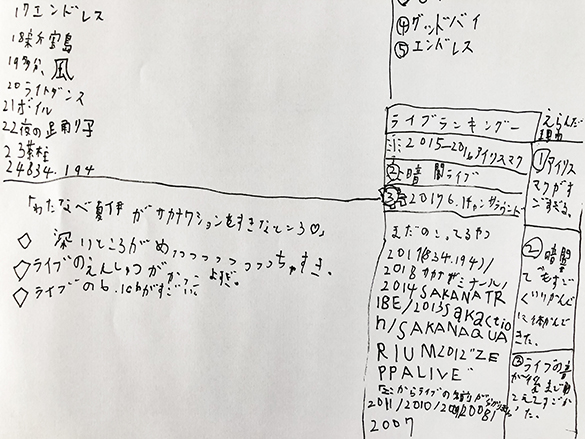 17エンドレス
18新宝島
19多分、風
20ライトダンス
21ボイル
22夜の踊り子
23茶柱
24834.194
④グッドバイ
⑤エンドレス
「わたなべ夏伊がサカナクションをすきなところ♡」
◇ 深いところがめっっっっっっっちゃすき。
◇ライブのえんしゅつがかっこよすぎ。
◇ライブの6.1chがすごい
ライブランキングー
2015-2016アイリスマク
②暗闇ライブ
③2019 6.1チャンサラウンド
まだのこってるやつ
2019(834.194)/
2018サカナゼミナール/
2014SAKANATR
IBE/2013Sakactio
n/SAKANAQUA
RIUM2012"ZE
PPALIVE"
ここからライブの
2011/2010/2009/2008/
2007
えらんだ
理由
①アイリス
マクがす
ごすぎる。
②暗闇
でもすご
くいりかんて
に体かんで
きた。
③ライブの音
が
こえてすごか
った。